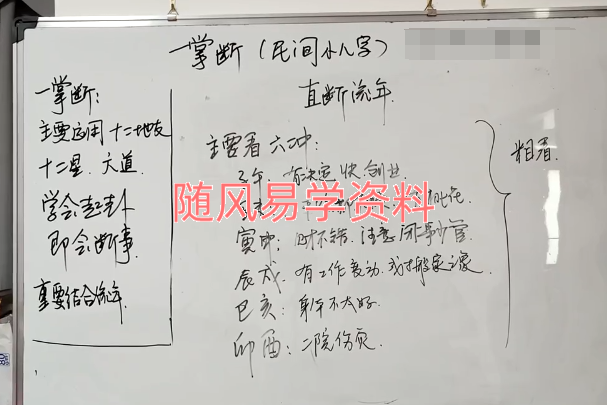 一掌断（民间小八字）
一掌断：
主要应用十二地支
十二星、六道
学会起卦
即会断事
重要结合流年
直断流年
主要看六冲：
子午：有决定快创业
随风易学资料
寅申：财不错、注意闲事少管
辰戌：有工作变动、或搬家之象
巳亥：身体不太好
卯酉：二院伤灾